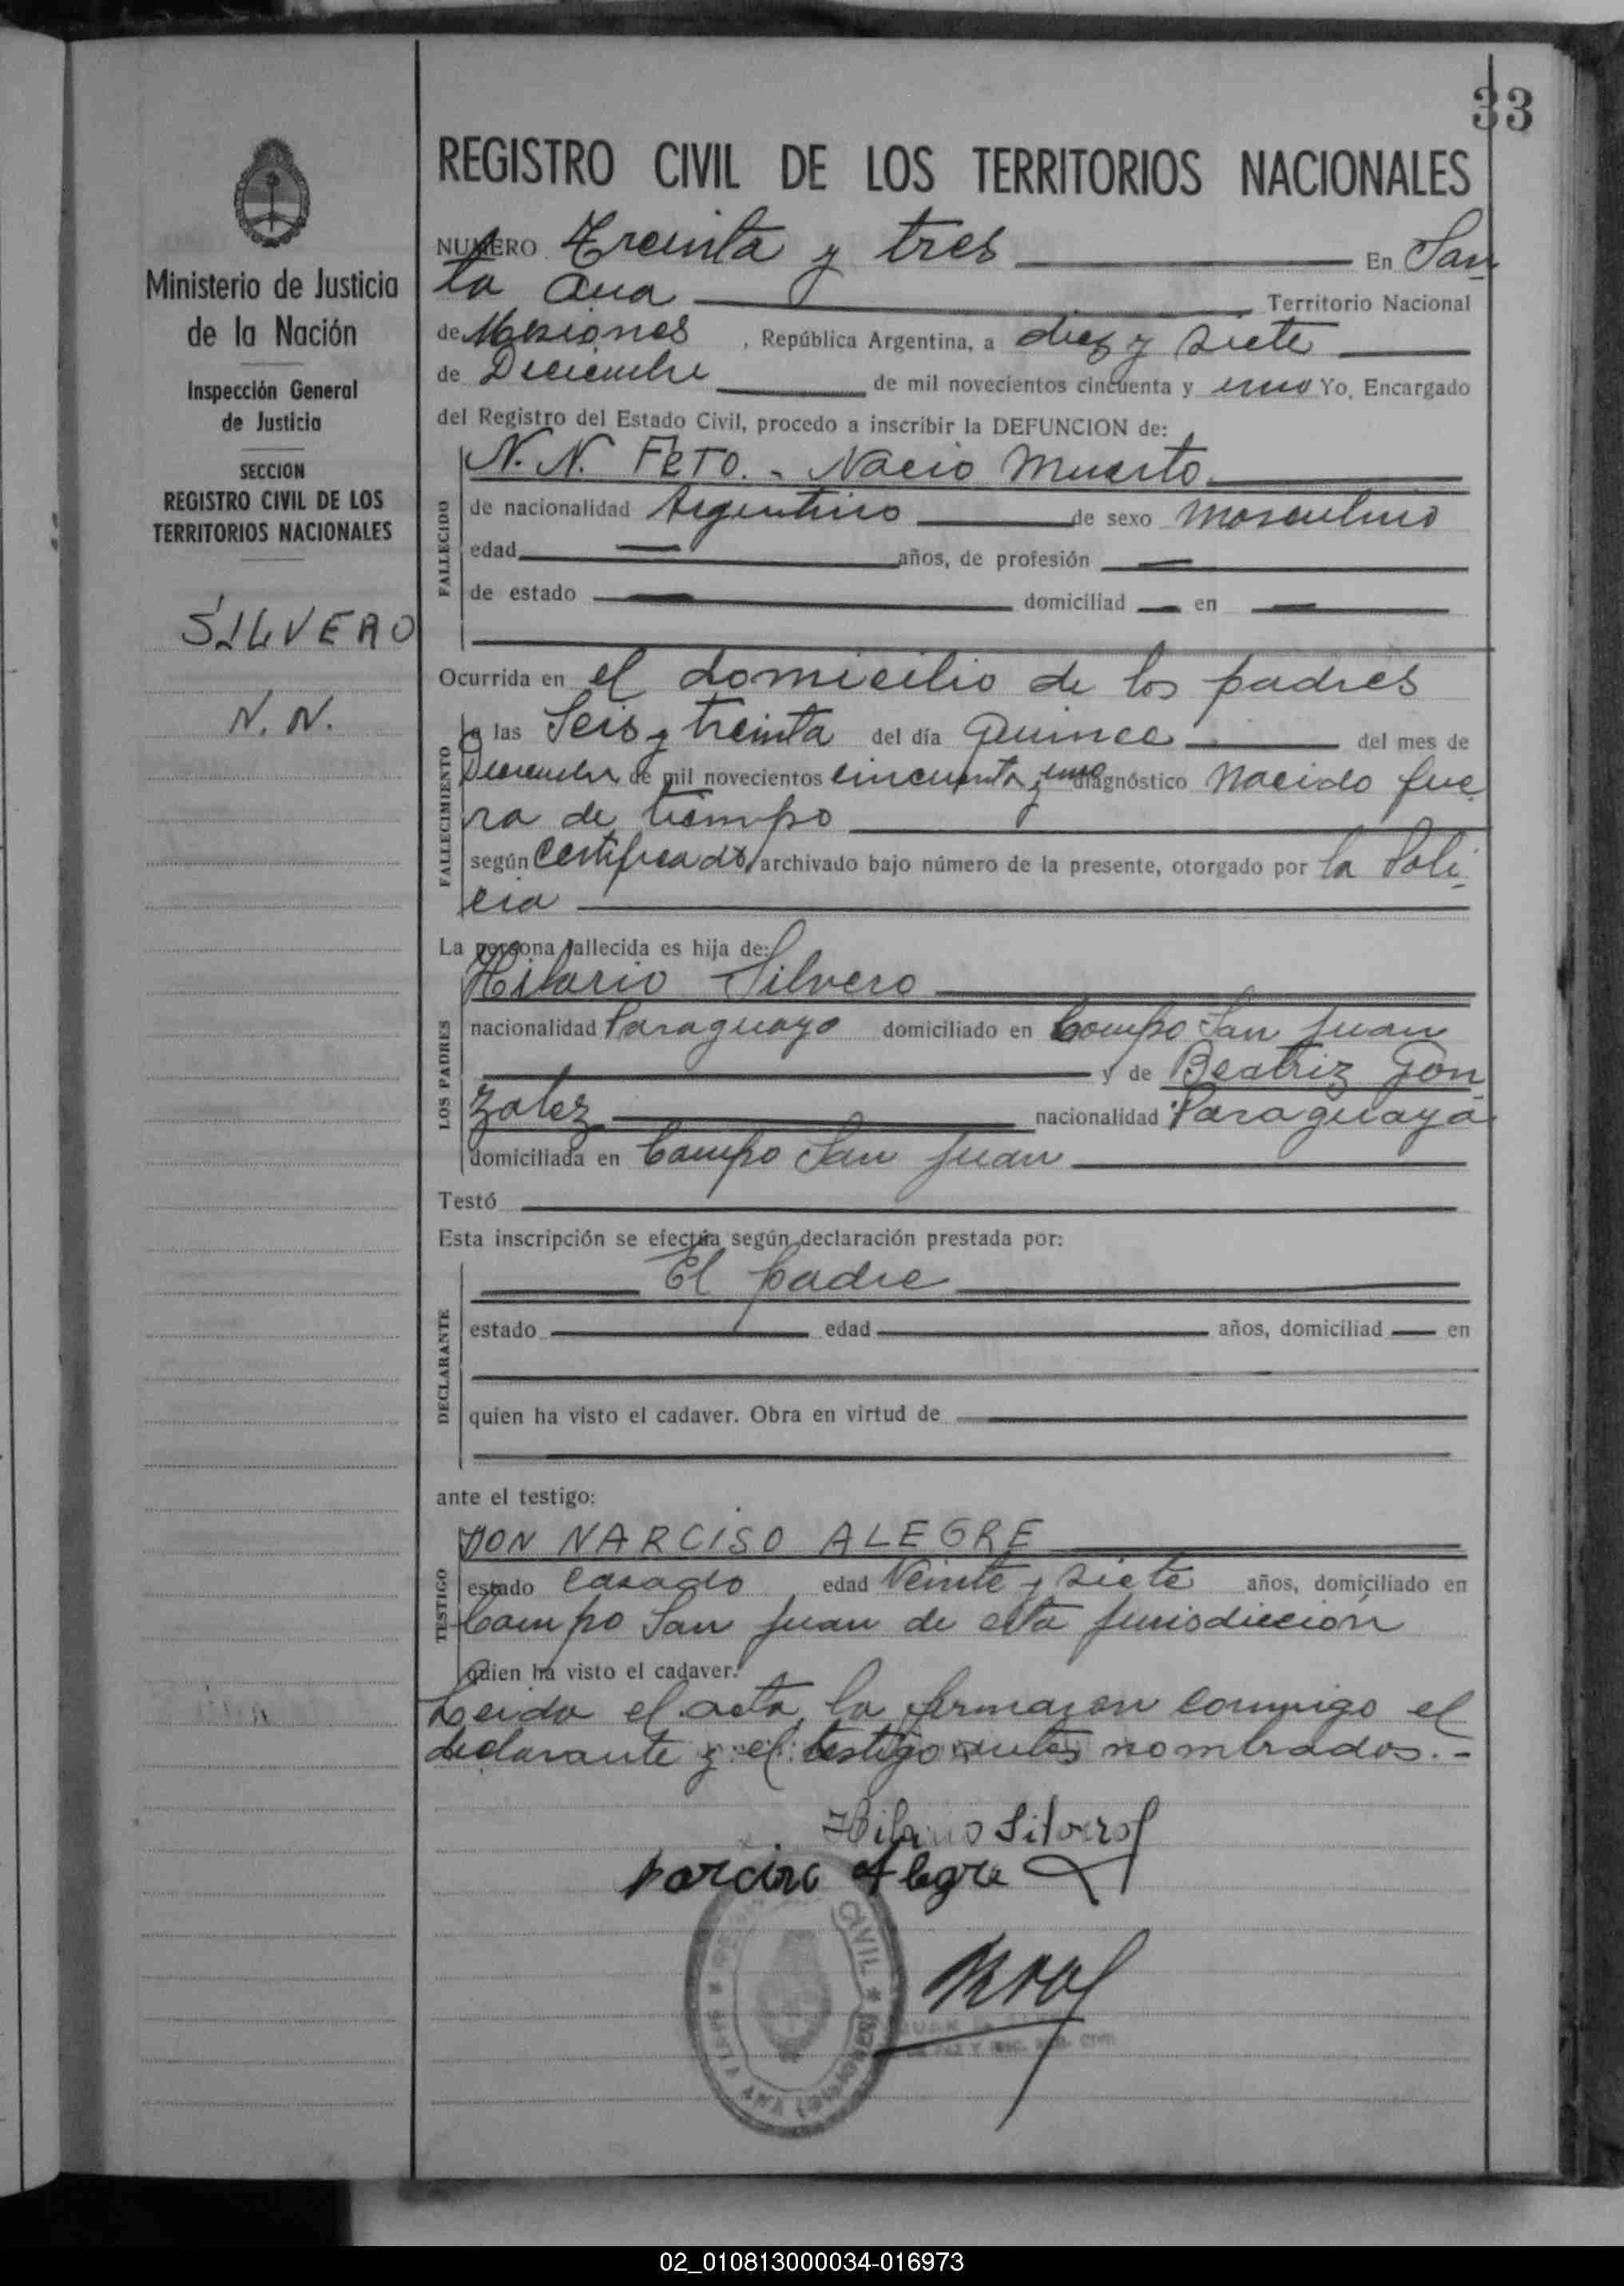 33
REGISTRO CIVIL DE LOS TERRITORIOS NACIONALES
Ministerio de Justicia
de la Nación
Inspección General
de Justicia
SECCION
REGISTRO CIVIL DE LOS
TERRITORIOS NACIONALES
SILVERO
N. N.
NUMERO Treinta y tres En San
ta Ana Territorio Nacional
de Misiones , República Argentina, a diez y siete
de Diciembre de mil novecientos cincuenta y uno Yo, Encargado
del Registro del Estado Civil, procedo a inscribir la DEFUNCION de:
N. N. FETO. - Nacio Muerto
FALLECIDO
de nacionalidad Argentino de sexo Masculino
edad — años, de profesión —
de estado — domiciliad — en —
Ocurrida en el domicilio de los padres
FALLECIMIENTO
a las Seis y treinta del día Quince del mes de
Diciembre de mil novecientos cincuenta y uno diagnóstico Nacido fue
ra de tiempo
según Certificado archivado bajo número de la presente, otorgado por la Poli
cia
La persona fallecida es hija de:
Hilario Silvero
LOS PADRES
nacionalidad Paraguayo domiciliado en Campo San Juan
y de Beatriz Gon
zalez nacionalidad Paraguaya
domiciliada en Campo San Juan
Testó
Esta inscripción se efectúa según declaración prestada por:
El padre
DECLARANTE
estado edad años, domiciliad — en
quien ha visto el cadaver. Obra en virtud de
ante el testigo:
DON NARCISO ALEGRE
TESTIGO
estado Casado edad Veinte y siete años, domiciliado en
Campo San Juan de esta jurisdiccion
quien ha visto el cadaver.
Leida el acta, la firmaron conmigo el
declarante y el testigo antes nombrados. -
Hilario Silvero
Narciso Alegre
CIVIL * SANTA ANA (MISIONES)
02_010813000034-016973